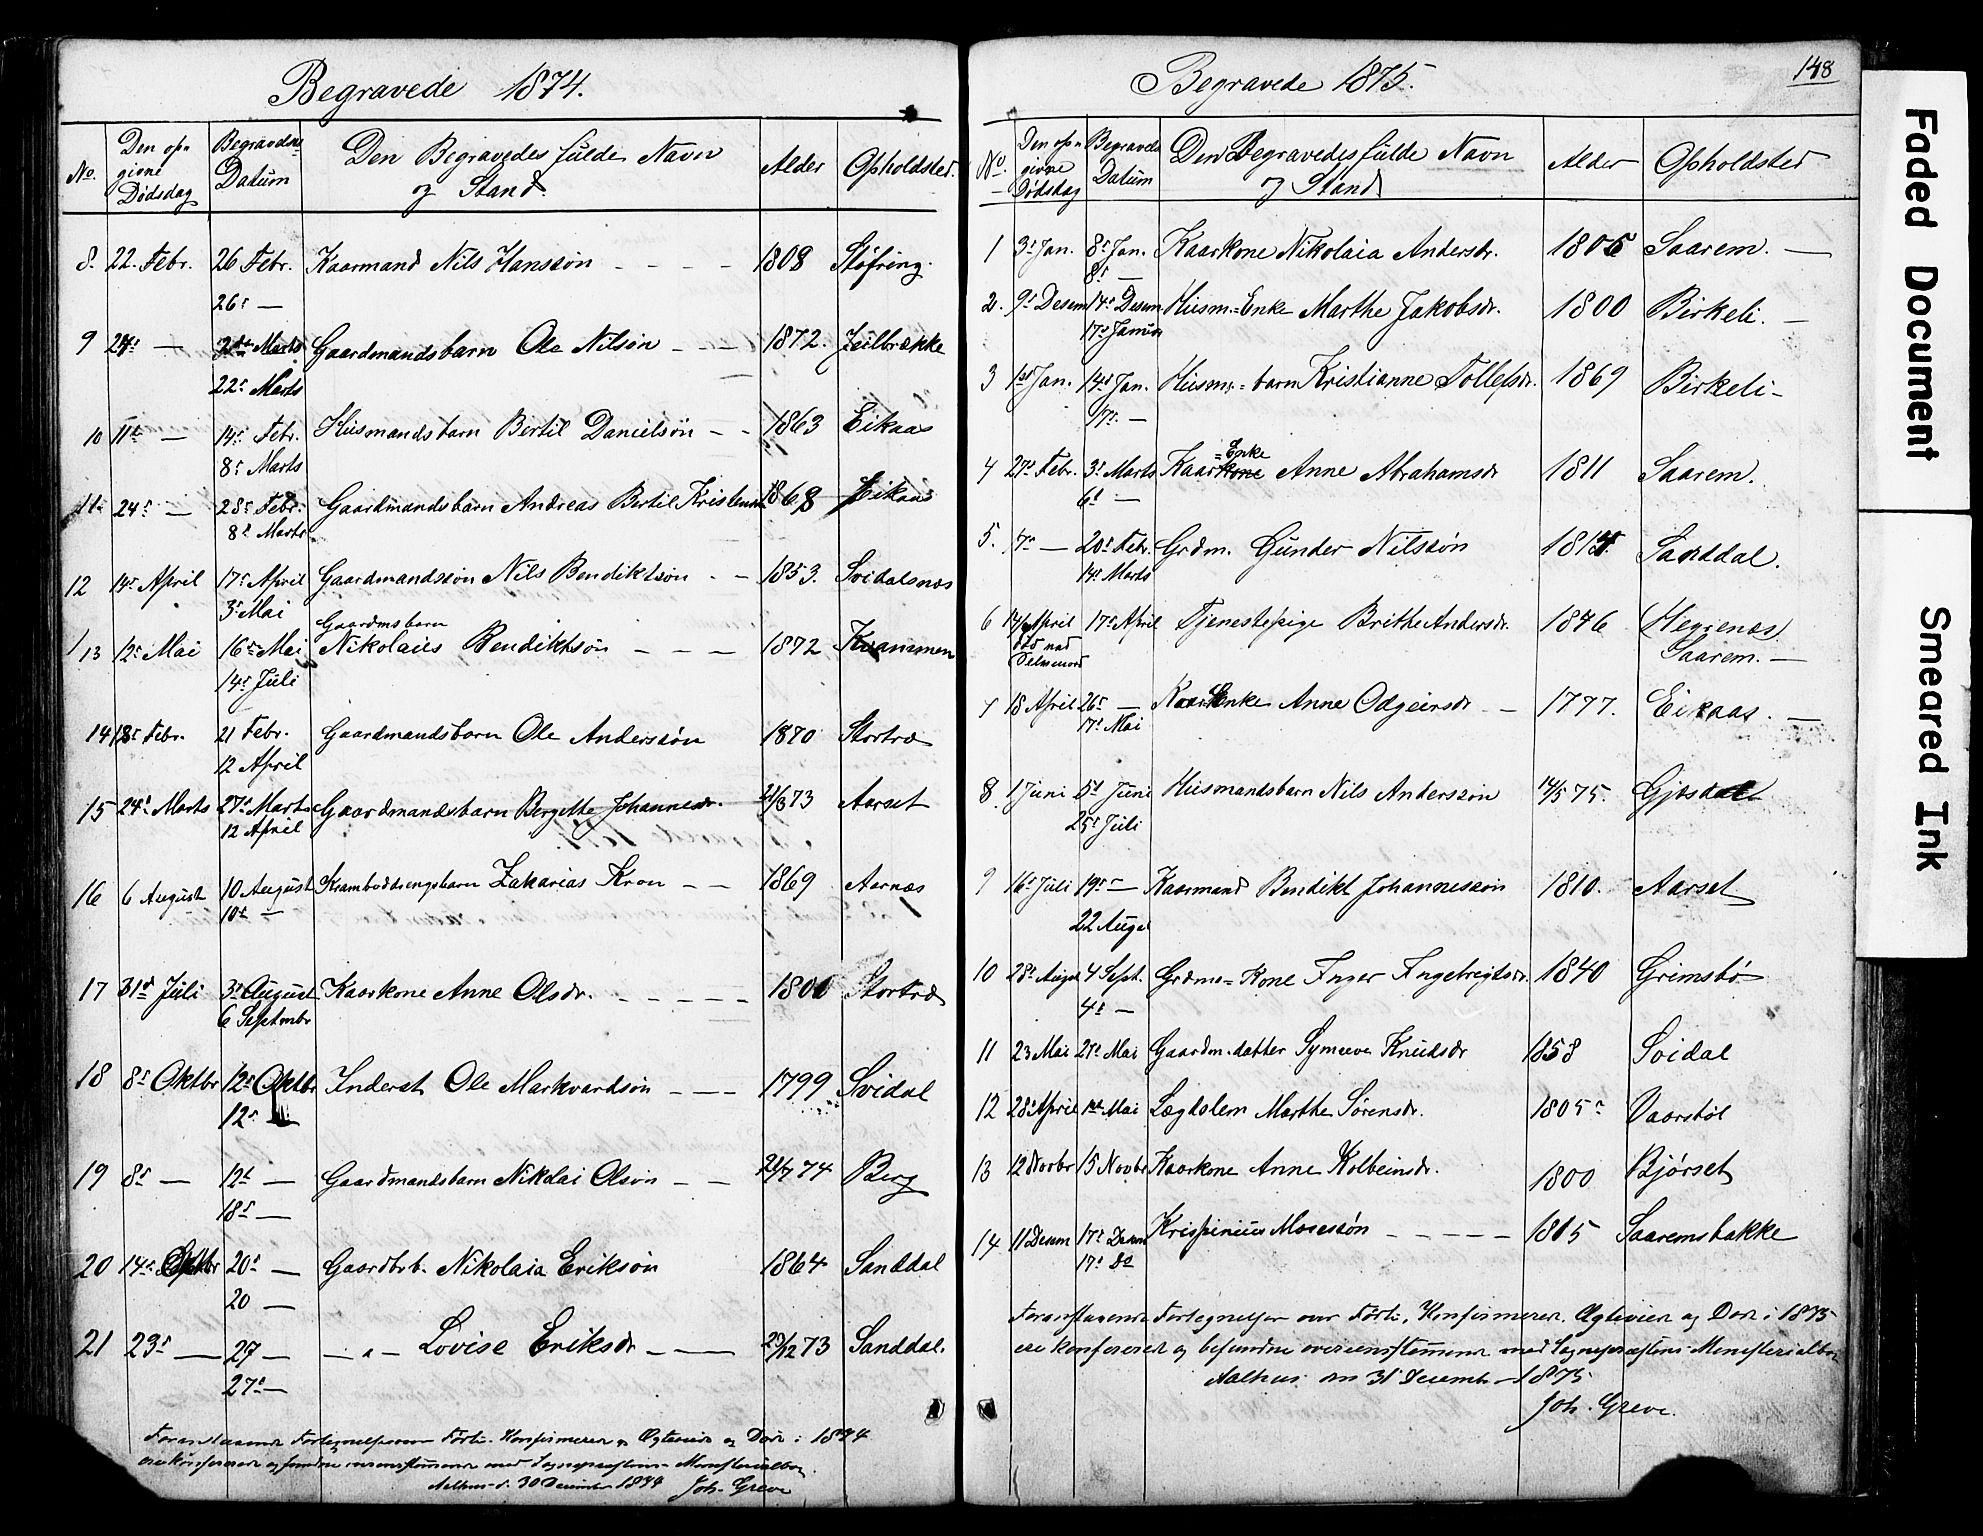 Begravede 1874.
No. Den op- givne Dødsdag Begravelses Datum Den Begravedes fulde Navn og Stand Alder Opholdsted.
8. 22. Febr. 26 Febr. Kaarmand Nils Hanssøn — — — — 1808 Støfring.
26de —
9 24de — Marts Gaardmandsbarn Ole Nilsøn — — — 1872. Jeilbrække
22de Marts
10 11te — 14de Febr. Husmandsbarn Bertil Danielsøn — — 1863 Eikaas
8de Marts
11. 24de — 28de Febr. Gaardmandsbarn Andreas Bertil 1868 Eikaas
8de Marts
12 14de April 17de April Gaardmandssøn Nils Bendiktsøn — — 1853. Svidalsnæs
3de Mai
Gaardmsbarn
13 12te Mai 16de Mai Nikolaus Bendiktsøn — — — — 1872 Kvammen
14de Juli
14 18de Febr. 21 Febr. Gaardmandsbarn Ole Anderssøn 1870 Stortræ
12 April
15 24de Marts 27de Marts Gaardmandsbarn Bergette Johannesdr. 21/3 73 Aarset
12 April
16 6 August 10 August Krambuddrengsbarn Zakarias Kron — — 1869 Aarnæs
10de —
17 31te Juli 3de August Kaarkone Anne Olsdr. — — — — — 1800 Stortræ
6 Septembr
18 8de Oktbr 12te Oktbr Inderst Ole Markvardsøn — — — 1799 Svidal
12te —
19 8de — 12te — Gaardmandsbarn Nikolai Olsøn — — 24/7 74 Berg
18de —
20 14de 20de — Gaardbrb. Nikolaia Eriksøn 1864 Sanddal
20 —
21 23de — 27 — — " — Lovise Eriksdr — — — 29/12 73 Sanddal.
27de —
Foranstaaende Fortegnelser over Fødte, Konfirmerede, Egteviede og Døde i 1874
ere konfererede og fundne overensstemmende med Sognepræstens Ministerialbog.
Aalhus d. 30 December 1874 Joh. Greve
Begravede 1875.
148
No. Den op- givne Dødsdag Begravede Datum Den Begravedes fulde Navn og Stand Alder Opholdsted
1 3de Jan. 8de Jan. Kaarkone Nikolaia Andersdr. 1805 Saarem. —
8de —
2. 9de Desem 14de Desem Husm.=Enke Marthe Jakobsdr. 1800 Birkeli. —
17de Januar
3 1ste Jan. 14de Jan. Husm.=barn Kristianne Tollefsdr. 1869 Birkeli —
17de —
=Enke
4 27de Febr. 3de Marts Kaarkone Anne Abrahamsdr 1811 Saarem.
6te —
5. 17de — 20de Febr. Grdm. Gunder Nilssøn Sanddal.
14de Marts
6 April 17de April Tjenestepige Brithe Andersdr. 1846 Hegrenæs
Saarem. —
7 18 April 26de — Kaar Enke Anne Odgeirsdr — 1777. Eikaas. —
17de Mai
8. 1 Juni 5te Juni Husmandsbarn Nils Anderssøn 14/5 75. Gjøsdal
25de Juli
9 16de Juli 19de — Kaarmand Bendikt Johannessøn 1810. Aarset
22 August
10 28de August 4 Sept. Grdms=Kone Inger Ingebrigtsdr. 1840 Grimsbø
4de —
11 23 Mai 27de Mai Gaardm.datter Synneve Knudsdr 1858 Svidal
12 28de April 1ste Mai Lægdslem Marthe Sørensdr. 1805 Vaarstøl
13 12 Novbr 15 Novbr Kaarkone Anne Kolbeinsdr. 1800 Bjørset
14 11 Desem 17de Desem Krispinius Mosessøn — — — — — 1815 Saaremsbakke
17de Do
Foranstaaende Fortegnelser over Fødte, Konfirmerede, Egteviede og Døde i 1875
ere konfererede og befundne overensstemmende med Sognepræstens Ministerialbog
Aalhus den 31 Decembr 1875
Joh. Greve.
Faded Document
Smeared Ink